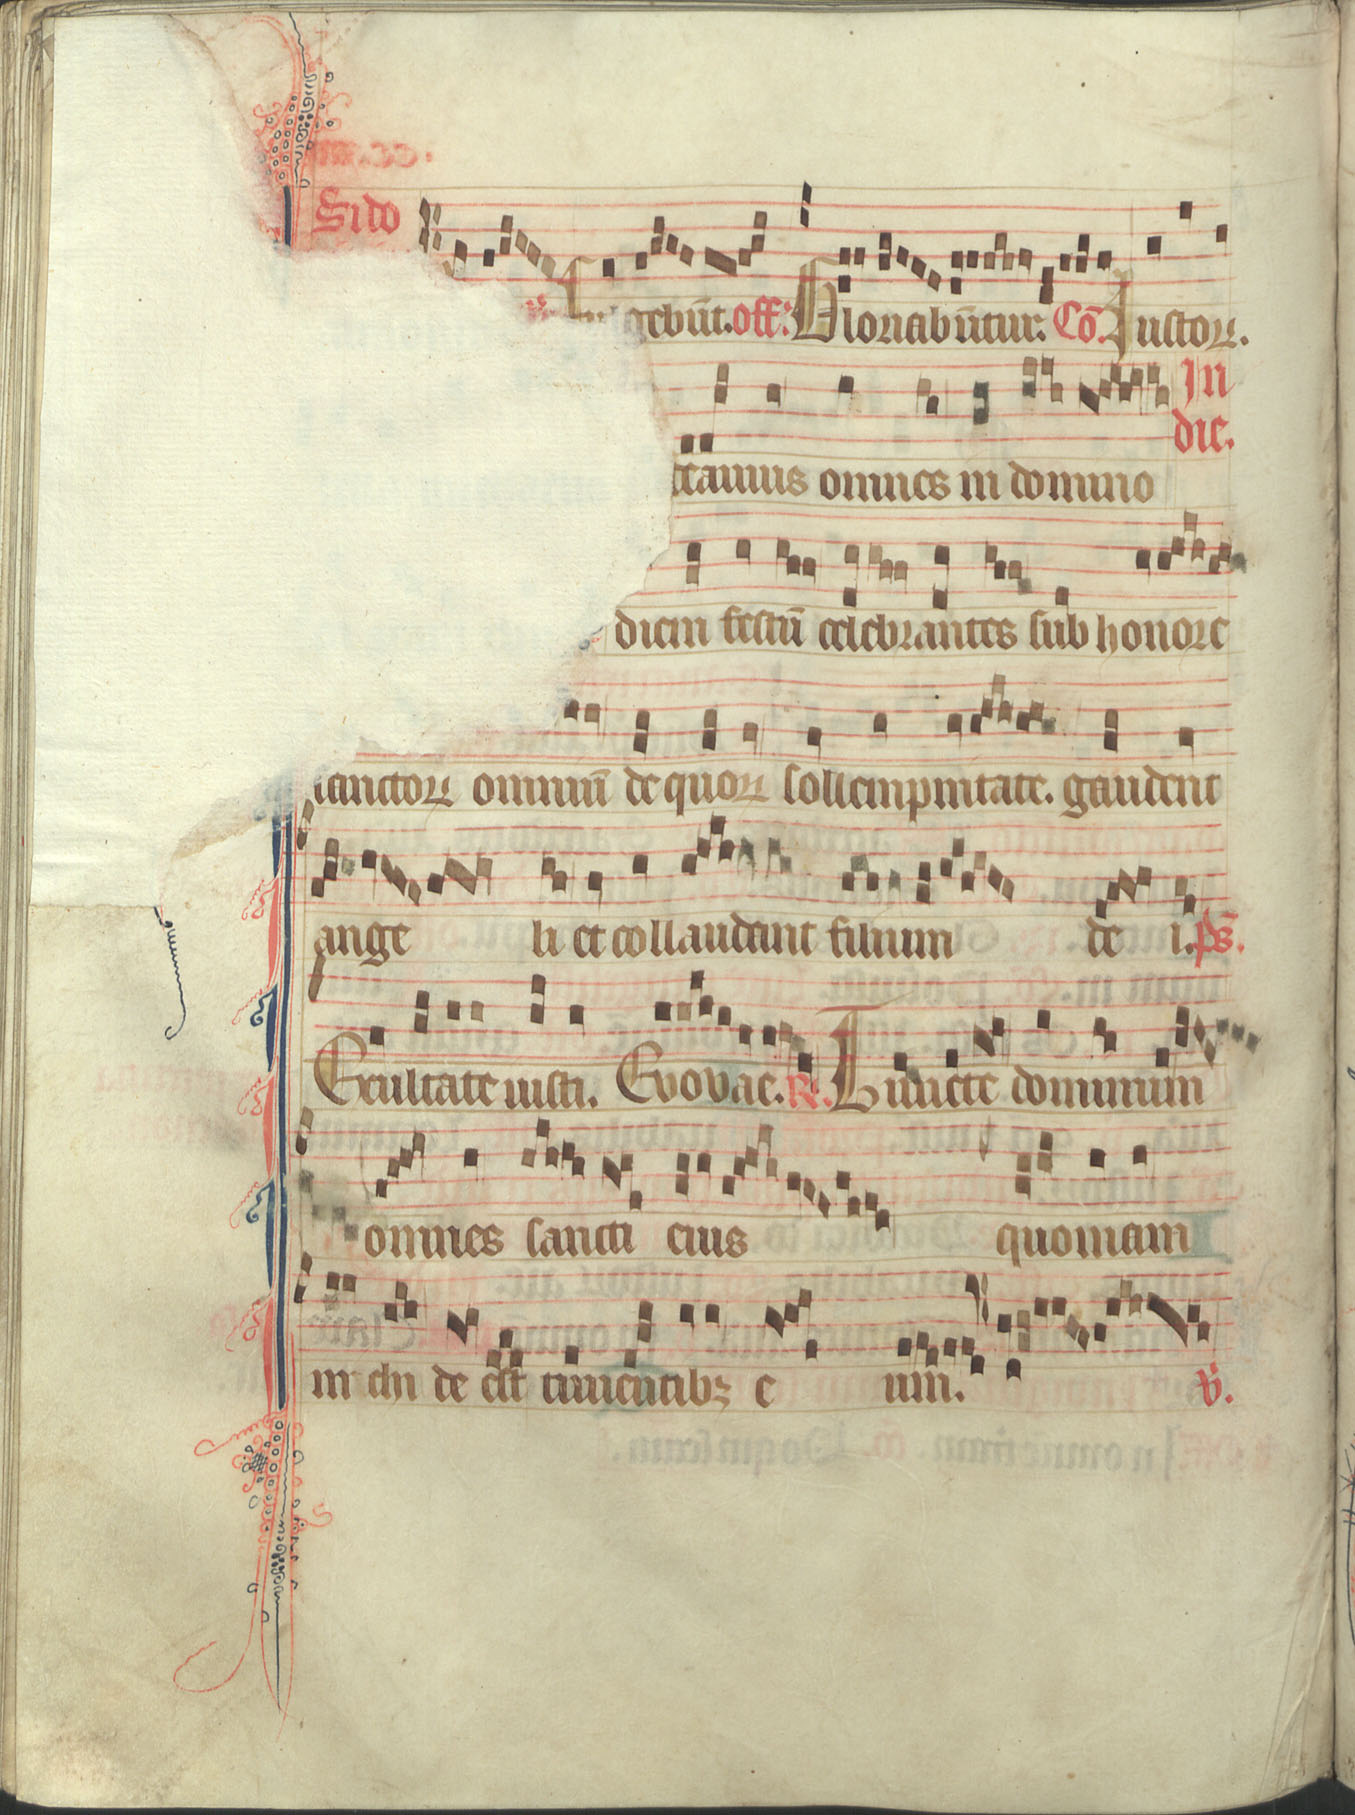 Sido
gebūt. off. Gloriabūtur. Co. Iustoꝝ.
In
die.
eamus omnes in domino
diem festū celebrantes sub honore
sanctoꝝ omniū de quoꝝ sollempnitate. gaudent
ange li et collaudant filium de i. ps.
Exultate iusti. Evovae. ℞. Timete dominum
omnes sancti eius quoniam
nichi de est timentibꝫ e um. ℣.